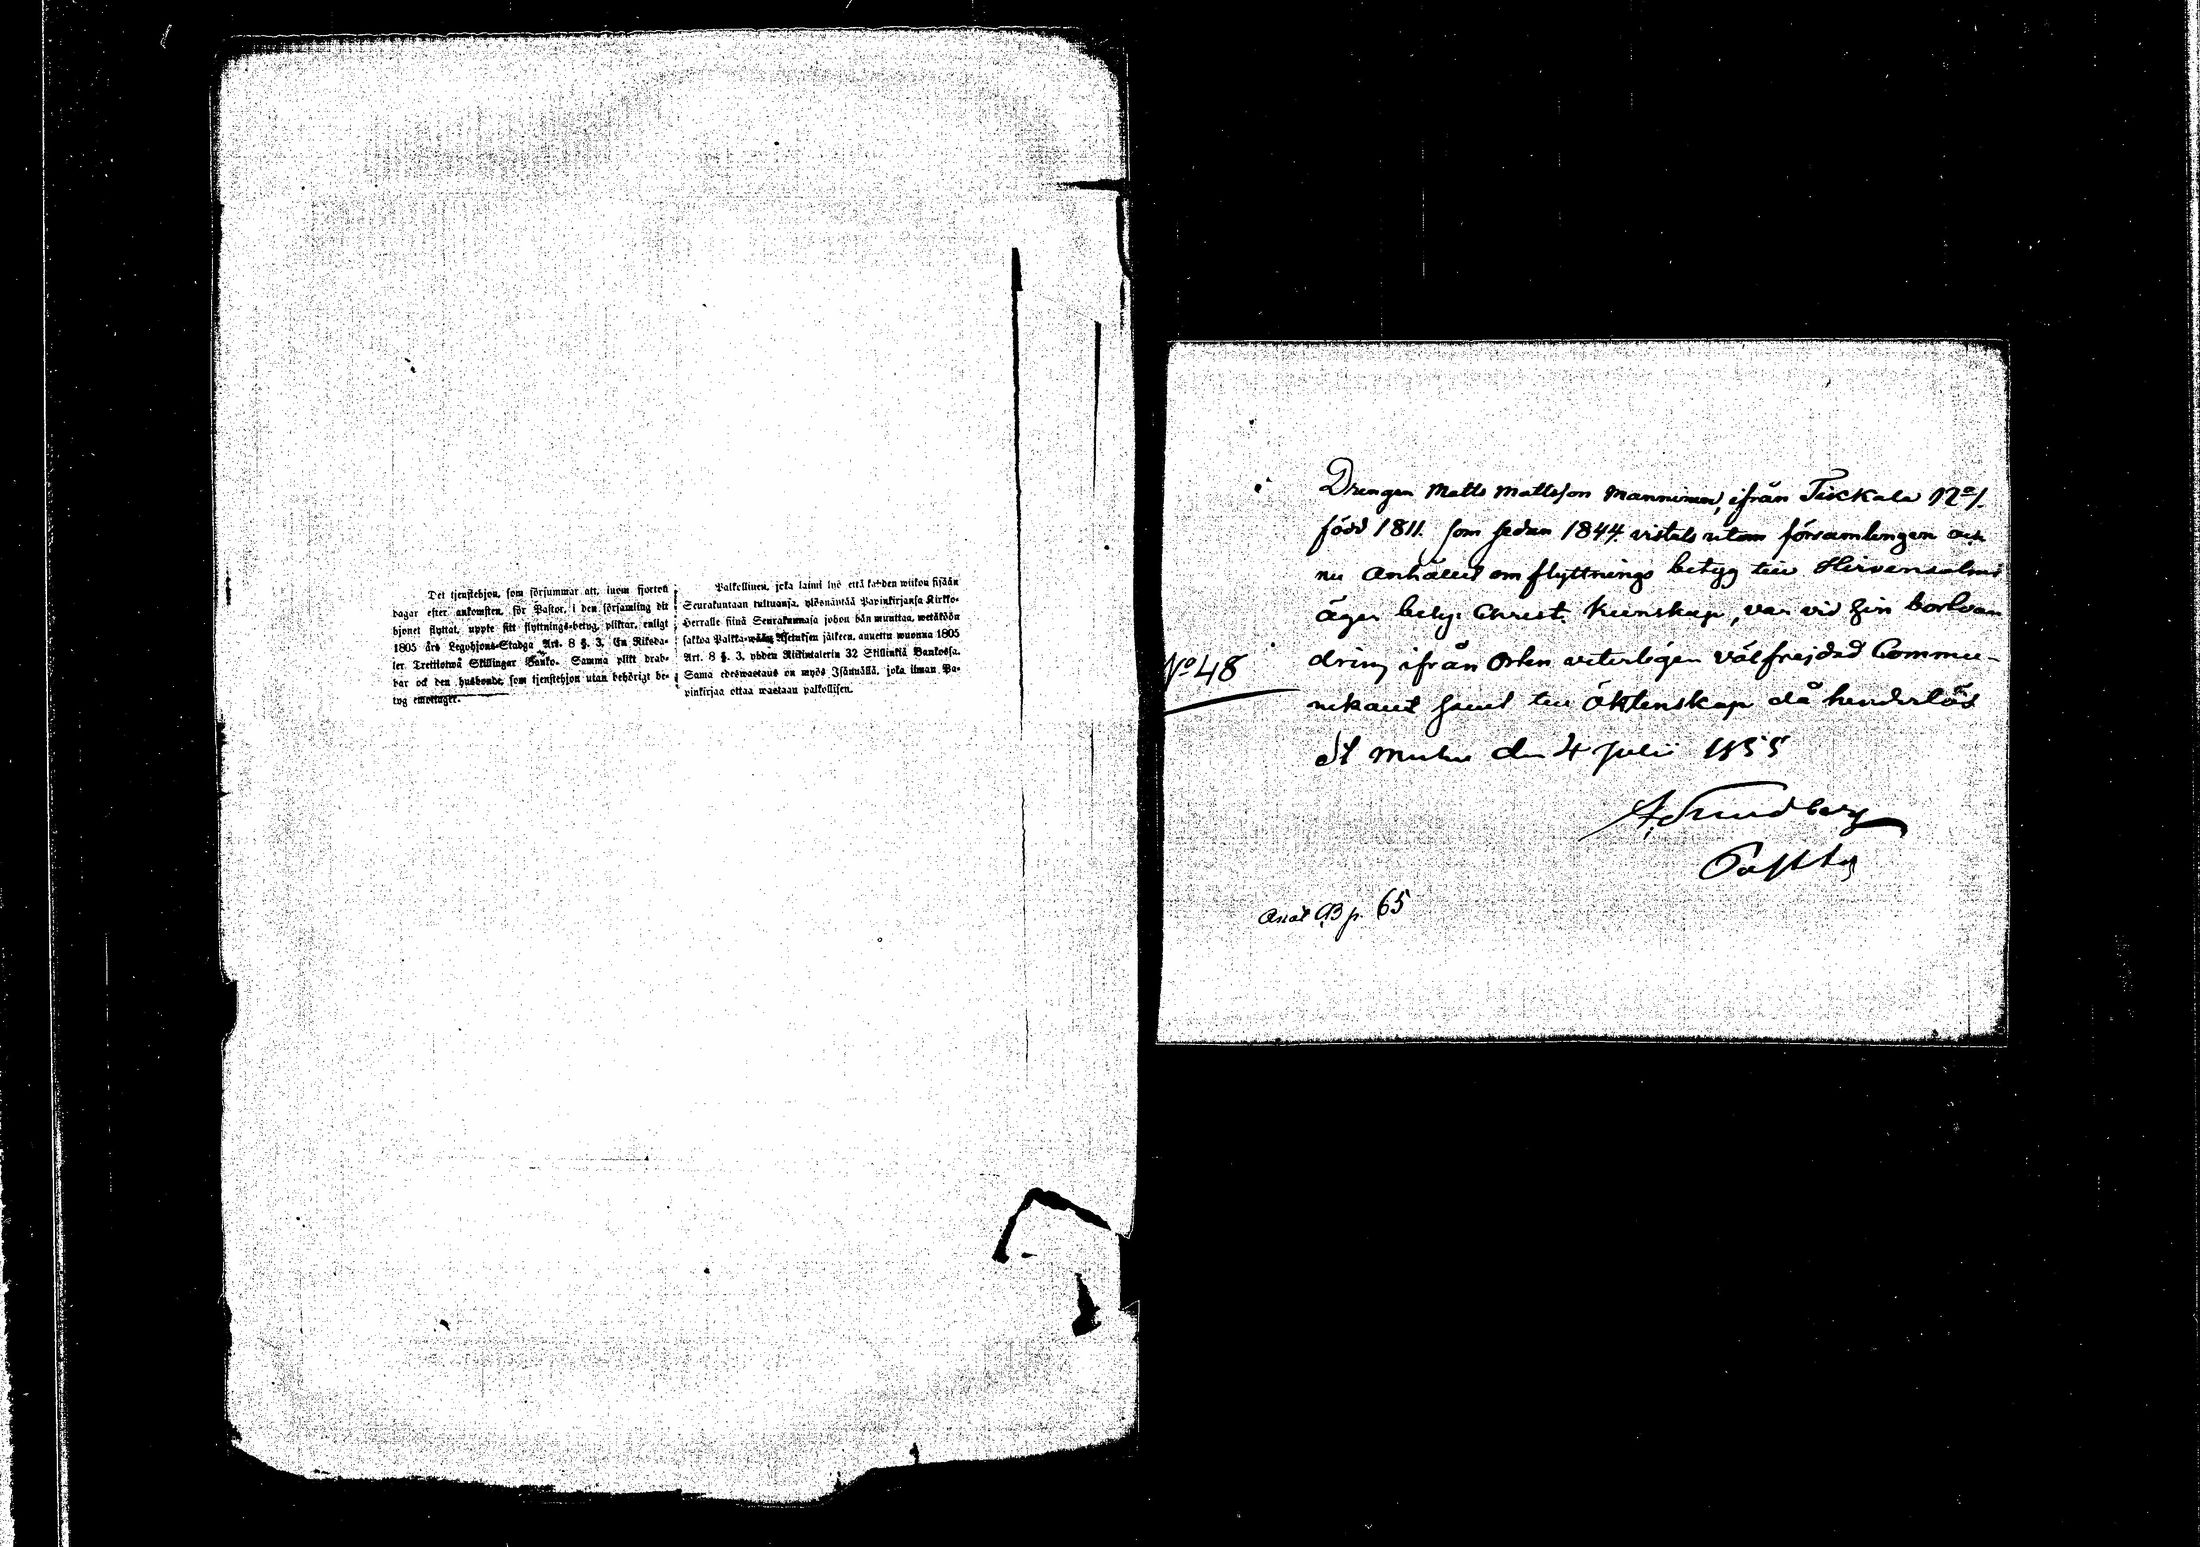 Det tjenstehjon, som försummar att, inom fjorton
dagar efter ankomsten, för Pastor, i den församling dit
hjonet flyttat, uppte sitt flyttnings-betyg, pliktar, enligt
1805 års Legohjons-Stadga Art. 8 §. 3. En Riksda-
ler Trettiotwå Skillingar Banko. Samma plikt drab-
bar ock den husbonde, som tjenstehjon utan behörigt be-
tyg emottager.
Palkollinen, joka laimi lyö että kahden wiikon sisään
Seurakuntaan tultuansa, ylösnäyttää Papinkirjansa Kirkko-
Herralle siinä Seurakunnasa johon hän muuttaa, wetäköön
sakkoa Palkka- Asetuksen jälkeen, annettu wuonna 1805
Art. 8 §. 3, yhden Riikintalerin 32 Skillinkiä Bankossa.
Sama edeswastaus on myös Isännällä, joka ilman Pa-
pinkirjaa ottaa wastaan palkollisen.
Drengen Matts Mattsson Manninen, ifrån Tickkala No 1.
född 1811. som sedan 1844 vistats utom församlingen och
nu anhållit om flyttnings betyg till Hirvensalmi
äger Christ. Kunskap, var vid sin bortvan
dring ifrån Orten veterligen välfrejdad Commu-
nikant samt till Äktenskap då hinderlös
No 48
St Michel den 4 Julii 1855
A. Sundberg
Anot B p. 65